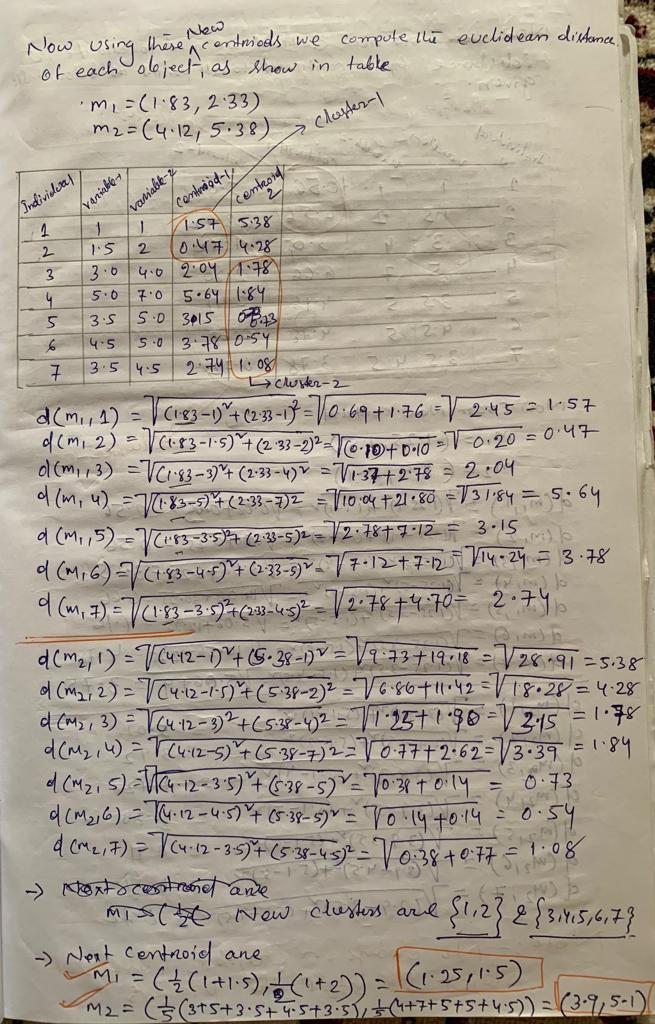 Now using these New centriods we compute the euclidean distance
of each object, as show in table
m1 = (1.83, 2.33)
m2 = (4.12, 5.38)
cluster-1
Individual variable-1 variable-2 centroid-1 centroid 2
1 1 1 1.57 5.38
2 1.5 2 0.47 4.28
3 3.0 4.0 2.04 1.78
4 5.0 7.0 5.64 1.84
5 3.5 5.0 3.15 0.73
6 4.5 5.0 3.78 0.54
7 3.5 4.5 2.74 1.08
cluster-2
d(m1, 1) = √(1.83-1)² + (2.33-1)² = √0.69+1.76 = √2.45 = 1.57
d(m1, 2) = √(1.83-1.5)² + (2.33-2)² = √(0.10+0.10 = √0.20 = 0.47
d(m1, 3) = √(1.83-3)² + (2.33-4)² = √1.37+2.78 = 2.04
d(m1, 4) = √(1.83-5)² + (2.33-7)² = √10.04+21.80 = √31.84 = 5.64
d(m1, 5) = √(1.83-3.5)² + (2.33-5)² = √2.78+7.12 = 3.15
d(m1, 6) = √(1.83-4.5)² + (2.33-5)² = √7.12+7.12 = √14.24 = 3.78
d(m1, 7) = √(1.83-3.5)² + (2.33-4.5)² = √2.78+4.70 = 2.74
d(m2, 1) = √(4.12-1)² + (5.38-1)² = √9.73+19.18 = √28.91 = 5.38
d(m2, 2) = √(4.12-1.5)² + (5.38-2)² = √6.86+11.42 = √18.28 = 4.28
d(m2, 3) = √(4.12-3)² + (5.38-4)² = √1.25+1.90 = √3.15 = 1.78
d(m2, 4) = √(4.12-5)² + (5.38-7)² = √0.77+2.62 = √3.39 = 1.84
d(m2, 5) = √(4.12-3.5)² + (5.38-5)² = √0.38+0.14 = 0.73
d(m2, 6) = √(4.12-4.5)² + (5.38-5)² = √0.14+0.14 = 0.54
d(m2, 7) = √(4.12-3.5)² + (5.38-4.5)² = √0.38+0.77 = 1.08
→ Next centroid are
m1 = ( New clusters are {1,2} & {3,4,5,6,7}
→ Next centroid are
m1 = (½(1+1.5), ½(1+2)) = (1.25, 1.5)
m2 = (⅕(3+5+3.5+4.5+3.5), ⅕(4+7+5+5+4.5)) = (3.9, 5.1)